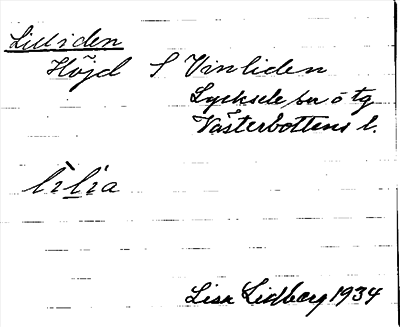 Lilliden
Höjd S Vinliden
Lycksele sn o tg
Västerbottens l.
lìlìa
Lisa Lidberg 1934